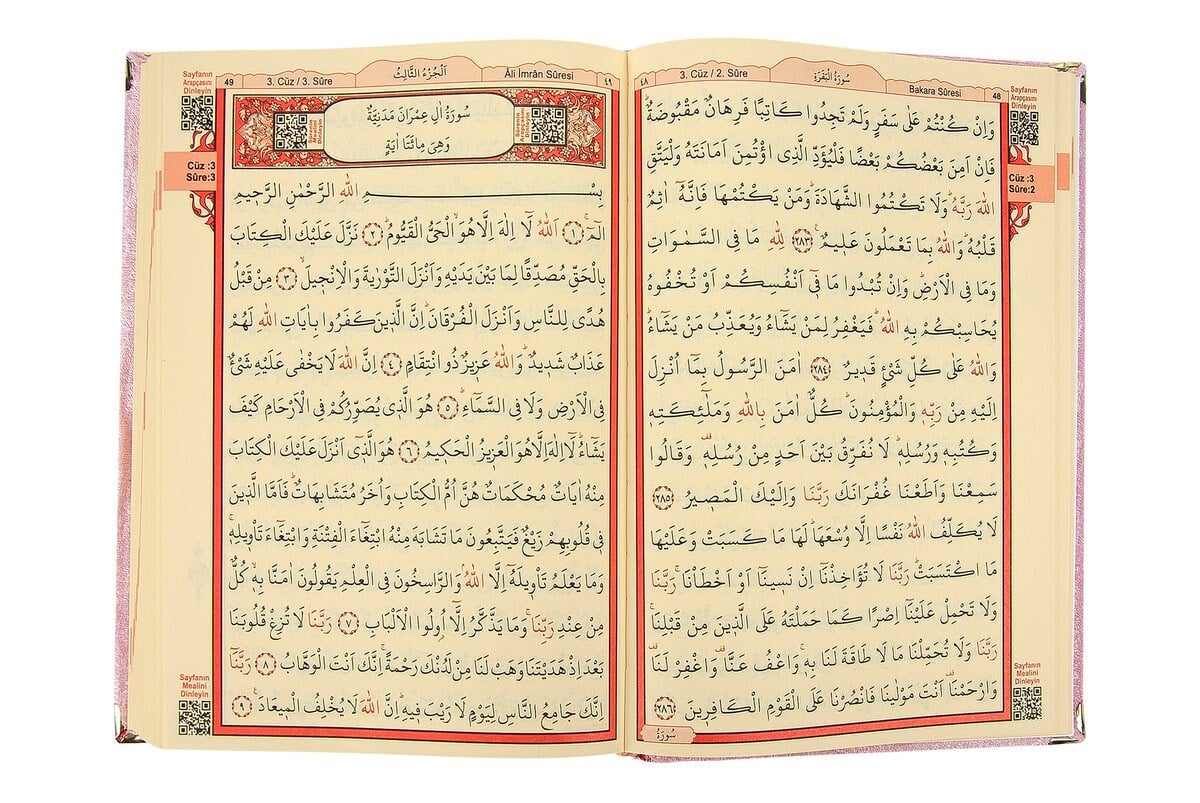 Bakara Sûresi
48
سُورَةُ الْبَقَرَةِ
3. Cüz / 2. Sûre
٤٨
Sayfanın
Arapçasını
Dinleyin
Cüz :3
Sûre:2
وَاِنْ كُنْتُمْ عَلٰى سَفَرٍ وَلَمْ تَجِدُوا كَاتِبًا فَرِهَانٌ مَقْبُوضَةٌۜ
فَاِنْ اَمِنَ بَعْضُكُمْ بَعْضًا فَلْيُؤَدِّ الَّذِى اؤْتُمِنَ اَمَانَتَهُ وَلْيَتَّقِ
اللّٰهَ رَبَّهُۜ وَلَا تَكْتُمُوا الشَّهَادَةَۜ وَمَنْ يَكْتُمْهَا فَاِنَّهُٓ اٰثِمٌ
قَلْبُهُۜ وَاللّٰهُ بِمَا تَعْمَلُونَ عَلِيمٌ۟ ﴿٢٨٣﴾ لِلّٰهِ مَا فِى السَّمٰوَاتِ
وَمَا فِى الْاَرْضِۜ وَاِنْ تُبْدُوا مَا فِٓى اَنْفُسِكُمْ اَوْ تُخْفُوهُ
يُحَاسِبْكُمْ بِهِ اللّٰهُۜ فَيَغْفِرُ لِمَنْ يَشَٓاءُ وَيُعَذِّبُ مَنْ يَشَٓاءُۜ
وَاللّٰهُ عَلٰى كُلِّ شَىْءٍ قَدِيرٌ ﴿٢٨٤﴾ اٰمَنَ الرَّسُولُ بِمَٓا اُنْزِلَ
اِلَيْهِ مِنْ رَبِّهِ وَالْمُؤْمِنُونَۜ كُلٌّ اٰمَنَ بِاللّٰهِ وَمَلٰٓئِكَتِهِ
وَكُتُبِهِ وَرُسُلِهِۜ لَا نُفَرِّقُ بَيْنَ اَحَدٍ مِنْ رُسُلِهِ۠ وَقَالُوا
سَمِعْنَا وَاَطَعْنَا غُفْرَانَكَ رَبَّنَا وَاِلَيْكَ الْمَصِيرُ ﴿٢٨٥﴾
لَا يُكَلِّفُ اللّٰهُ نَفْسًا اِلَّا وُسْعَهَاۜ لَهَا مَا كَسَبَتْ وَعَلَيْهَا
مَا اكْتَسَبَتْۜ رَبَّنَا لَا تُؤَاخِذْنَٓا اِنْ نَسِينَٓا اَوْ اَخْطَأْنَاۚ رَبَّنَا
وَلَا تَحْمِلْ عَلَيْنَٓا اِصْرًا كَمَا حَمَلْتَهُ عَلَى الَّذِينَ مِنْ قَبْلِنَاۚ
رَبَّنَا وَلَا تُحَمِّلْنَا مَا لَا طَاقَةَ لَنَا بِهِۚ وَاعْفُ عَنَّا۠ وَاغْفِرْ لَنَا۠
وَارْحَمْنَا۠ اَنْتَ مَوْلٰينَا فَانْصُرْنَا عَلَى الْقَوْمِ الْكَافِرِينَ ﴿٢٨٦﴾
سُورَةُ
Sayfanın
Mealini
Dinleyin
٤٩
Âli İmrân Sûresi
اَلْجُزْءُ الثَّالِثُ
3. Cüz / 3. Sûre
49
Sayfanın
Arapçasını
Dinleyin
Cüz :3
Sûre:3
سُورَةُ اٰلِ عِمْرَانَ مَدَنِيَّةٌ
وَهِىَ مِائَتَا اٰيَةٍ
Sûrenin
Arapçasını
Dinleyin
Sûrenin
Mealini
Dinleyin
بِسْمِ اللّٰهِ الرَّحْمٰنِ الرَّحِيمِ
الٓمٓۚ ﴿١﴾ اَللّٰهُ لَٓا اِلٰهَ اِلَّا هُوَۙ الْحَىُّ الْقَيُّومُۜ ﴿٢﴾ نَزَّلَ عَلَيْكَ الْكِتَابَ
بِالْحَقِّ مُصَدِّقًا لِمَا بَيْنَ يَدَيْهِ وَاَنْزَلَ التَّوْرٰيةَ وَالْاِنْجِيلَۙ ﴿٣﴾ مِنْ قَبْلُ
هُدًى لِلنَّاسِ وَاَنْزَلَ الْفُرْقَانَۜ اِنَّ الَّذِينَ كَفَرُوا بِاٰيَاتِ اللّٰهِ لَهُمْ
عَذَابٌ شَدِيدٌۜ وَاللّٰهُ عَزِيزٌ ذُو انْتِقَامٍ ﴿٤﴾ اِنَّ اللّٰهَ لَا يَخْفٰى عَلَيْهِ شَىْءٌ
فِى الْاَرْضِ وَلَا فِى السَّمَٓاءِۜ ﴿٥﴾ هُوَ الَّذِى يُصَوِّرُكُمْ فِى الْاَرْحَامِ كَيْفَ
يَشَٓاءُۜ لَٓا اِلٰهَ اِلَّا هُوَ الْعَزِيزُ الْحَكِيمُ ﴿٦﴾ هُوَ الَّذِٓى اَنْزَلَ عَلَيْكَ الْكِتَابَ
مِنْهُ اٰيَاتٌ مُحْكَمَاتٌ هُنَّ اُمُّ الْكِتَابِ وَاُخَرُ مُتَشَابِهَاتٌۜ فَاَمَّا الَّذِينَ
فِى قُلُوبِهِمْ زَيْغٌ فَيَتَّبِعُونَ مَا تَشَابَهَ مِنْهُ ابْتِغَٓاءَ الْفِتْنَةِ وَابْتِغَٓاءَ تَأْوِيلِهِۚ
وَمَا يَعْلَمُ تَأْوِيلَهُٓ اِلَّا اللّٰهُۢ وَالرَّاسِخُونَ فِى الْعِلْمِ يَقُولُونَ اٰمَنَّا بِهِۙ كُلٌّ
مِنْ عِنْدِ رَبِّنَاۚ وَمَا يَذَّكَّرُ اِلَّٓا اُولُوا الْاَلْبَابِ ﴿٧﴾ رَبَّنَا لَا تُزِغْ قُلُوبَنَا
بَعْدَ اِذْ هَدَيْتَنَا وَهَبْ لَنَا مِنْ لَدُنْكَ رَحْمَةًۚ اِنَّكَ اَنْتَ الْوَهَّابُ ﴿٨﴾ رَبَّنَٓا
اِنَّكَ جَامِعُ النَّاسِ لِيَوْمٍ لَا رَيْبَ فِيهِۜ اِنَّ اللّٰهَ لَا يُخْلِفُ الْمِيعَادَ۟ ﴿٩﴾
Sayfanın
Mealini
Dinleyin